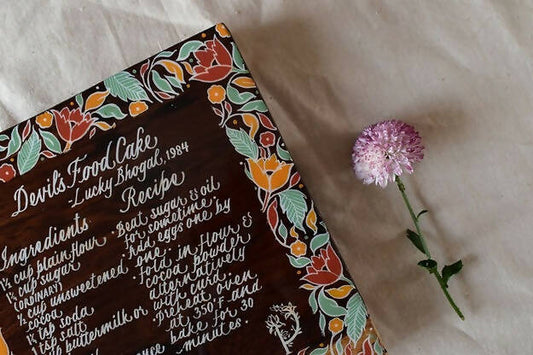 Devil's Food Cake
- Lucky Bhogal, 1984
Ingredients
1½ cup plain flour
1¼ cup sugar
(ORDINARY)
½ cup unsweetened
cocoa
tsp soda
tsp salt
buttermilk or
Recipe
· Beat sugar & oil
for sometime.
· Add eggs one by
one.
· Fold in flour &
cocoa powder
alternatively
with curd.
· Preheat oven
at 350°F and
bake for 30
minutes.